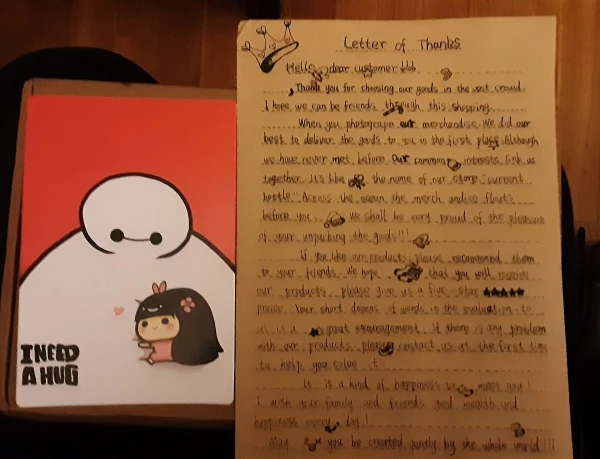 I NEED
A HUG
Letter of Thanks
Hello, dear customer!!!
Thank you for choosing our goods in the vast crowd.
I hope we can be friends through this shopping.
When you photograph our merchandise. We did our
best to deliver the goods to you in the first place. Although
we have never met before. Our common interests link us
together. It's like the name of our store "current
bottle". Across the ocean the merch andise floats
before you. We shall be very proud of the pleasure
of your unpacking the goods!!!
If you like our products please recommend them
to your friends. We hope that you will receive
our products please give us a five-star ★★★★★
praise. Your short dozens of words in the evaluation to
us is a great encouragement. If there is any problem
with our products. please contact us at the first time
to help you solve it.
It is a kind of happiness to meet you!
I wish your family and friends good health and
happiness every day!
May you be treated gently by the whole world!!!